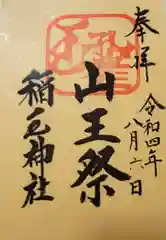 奉拝
令和四年
八月六日
山王祭
稲毛神社